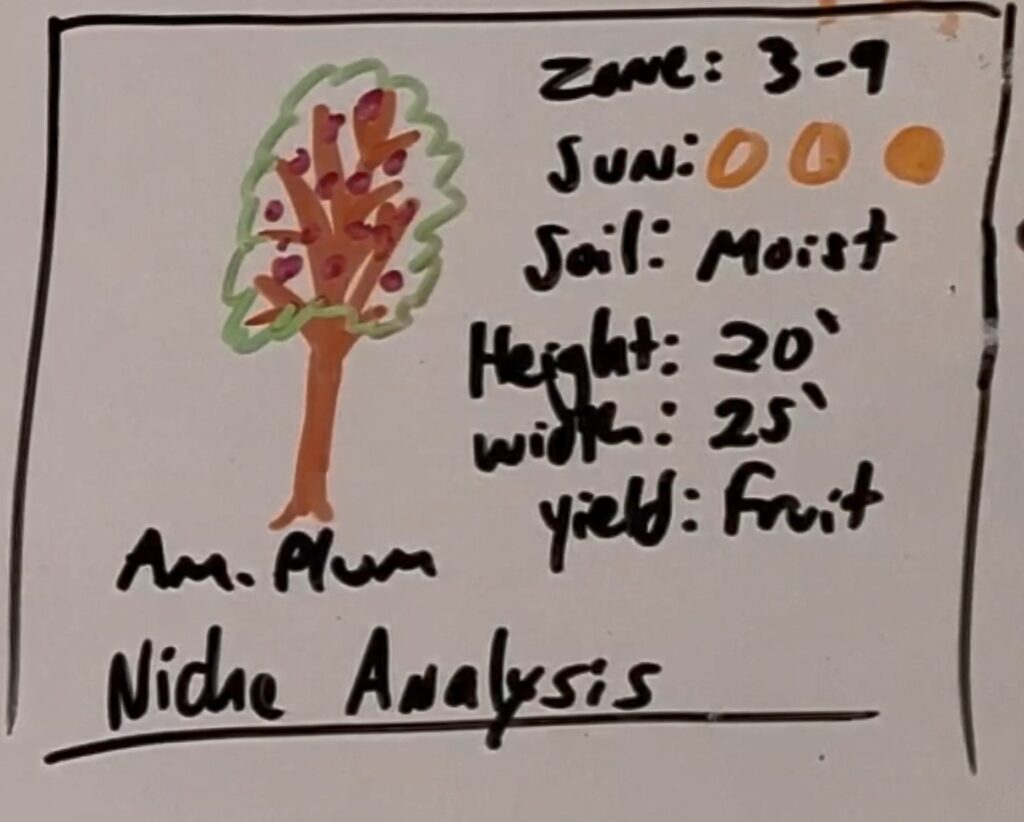 Zone: 3-9
Sun:
Soil: Moist
Height: 20'
width: 25'
yield: Fruit
Am. Plum
Niche Analysis